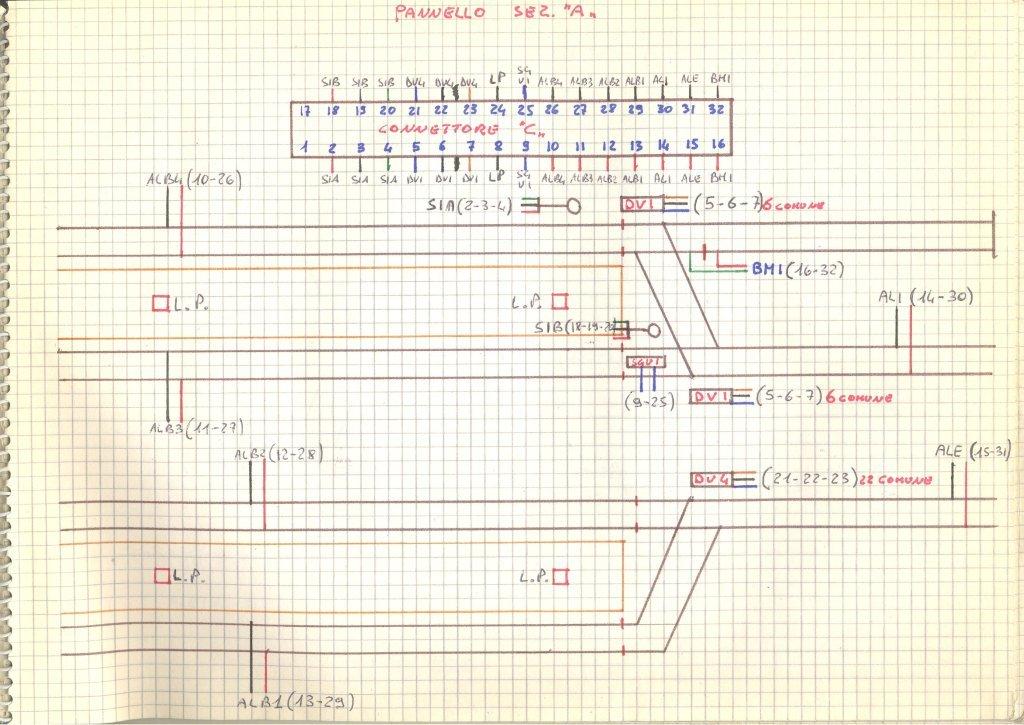 PANNELLO SEZ. "A"
SIB SIB SIB DV4 DV4 DV4 LP SG V1 ALB4 ALB3 ALB2 ALB1 AL1 ALE BM1
17 18 19 20 21 22 23 24 25 26 27 28 29 30 31 32
CONNETTORE "C"
1 2 3 4 5 6 7 8 9 10 11 12 13 14 15 16
SIA SIA SIA DV1 DV1 DV1 LP SG V1 ALB4 ALB3 ALB2 ALB1 AL1 ALE BM1
ALB4 (10-26)
SIA (2-3-4)
DV1 (5-6-7) 6 COMUNE
BM1 (16-32)
L.P.
L.P.
AL1 (14-30)
SIB (18-19-20
SGV1
(9-25)
DV1 (5-6-7) 6 COMUNE
ALB3 (11-27)
ALB2 (12-28)
ALE (15-31)
DV4 (21-22-23) 22 COMUNE
L.P.
L.P.
ALB1 (13-29)